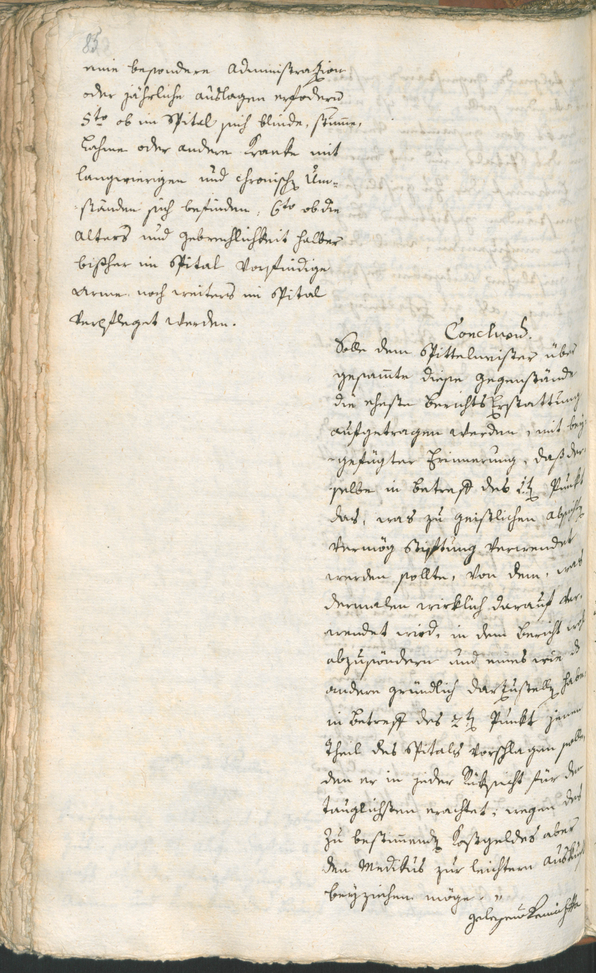 85
eine besondere Administration
oder jährliche Auslagen erfodern
5to ob im Spital sich blinde, stumme,
Lahme oder andere Kranke mit
langwierigen und chronisch Um-
ständen sich befinden, 6to ob die
Alters und gebrechlichkeit halber
bisher im Spital Vorfindige
Arme noch weiters im Spital
Verpfleget werden.
Conclusum.
Solle dem Spittelmeister über
gesamte diese Gegenstände
die eheste BerichtsErstattung
aufgetragen werden, mit bey
gefügter Erinnerung, daß der
selbe in Betreff des Punkt
das, was zu geistlichen
Vermög Stiftung Verwendet
werden sollte, Von dem, was
dermalen wirklich darauf ver-
wendet wird, in dem Bericht
abzusöndern und eines wie
andere gründlich darzustellen habe
in Betreff des 2t Punkt jenen
Theil des Spitals Vorschlagen solle,
den er in jeder Rücksicht für den
tauglichsten erachtet, wegen des
zu bestimmenden Kostgeldes aber
den Medikus zur leichtern
beyziehen möge.